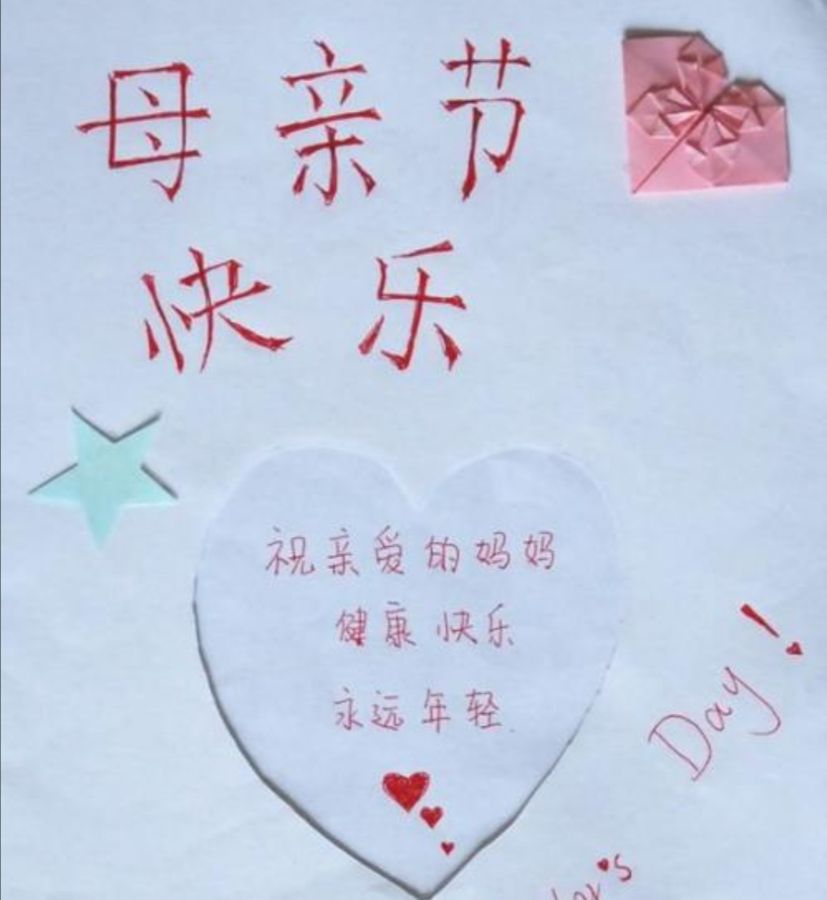 母亲节
快乐
祝亲爱的妈妈
健康快乐
永远年轻
Day!